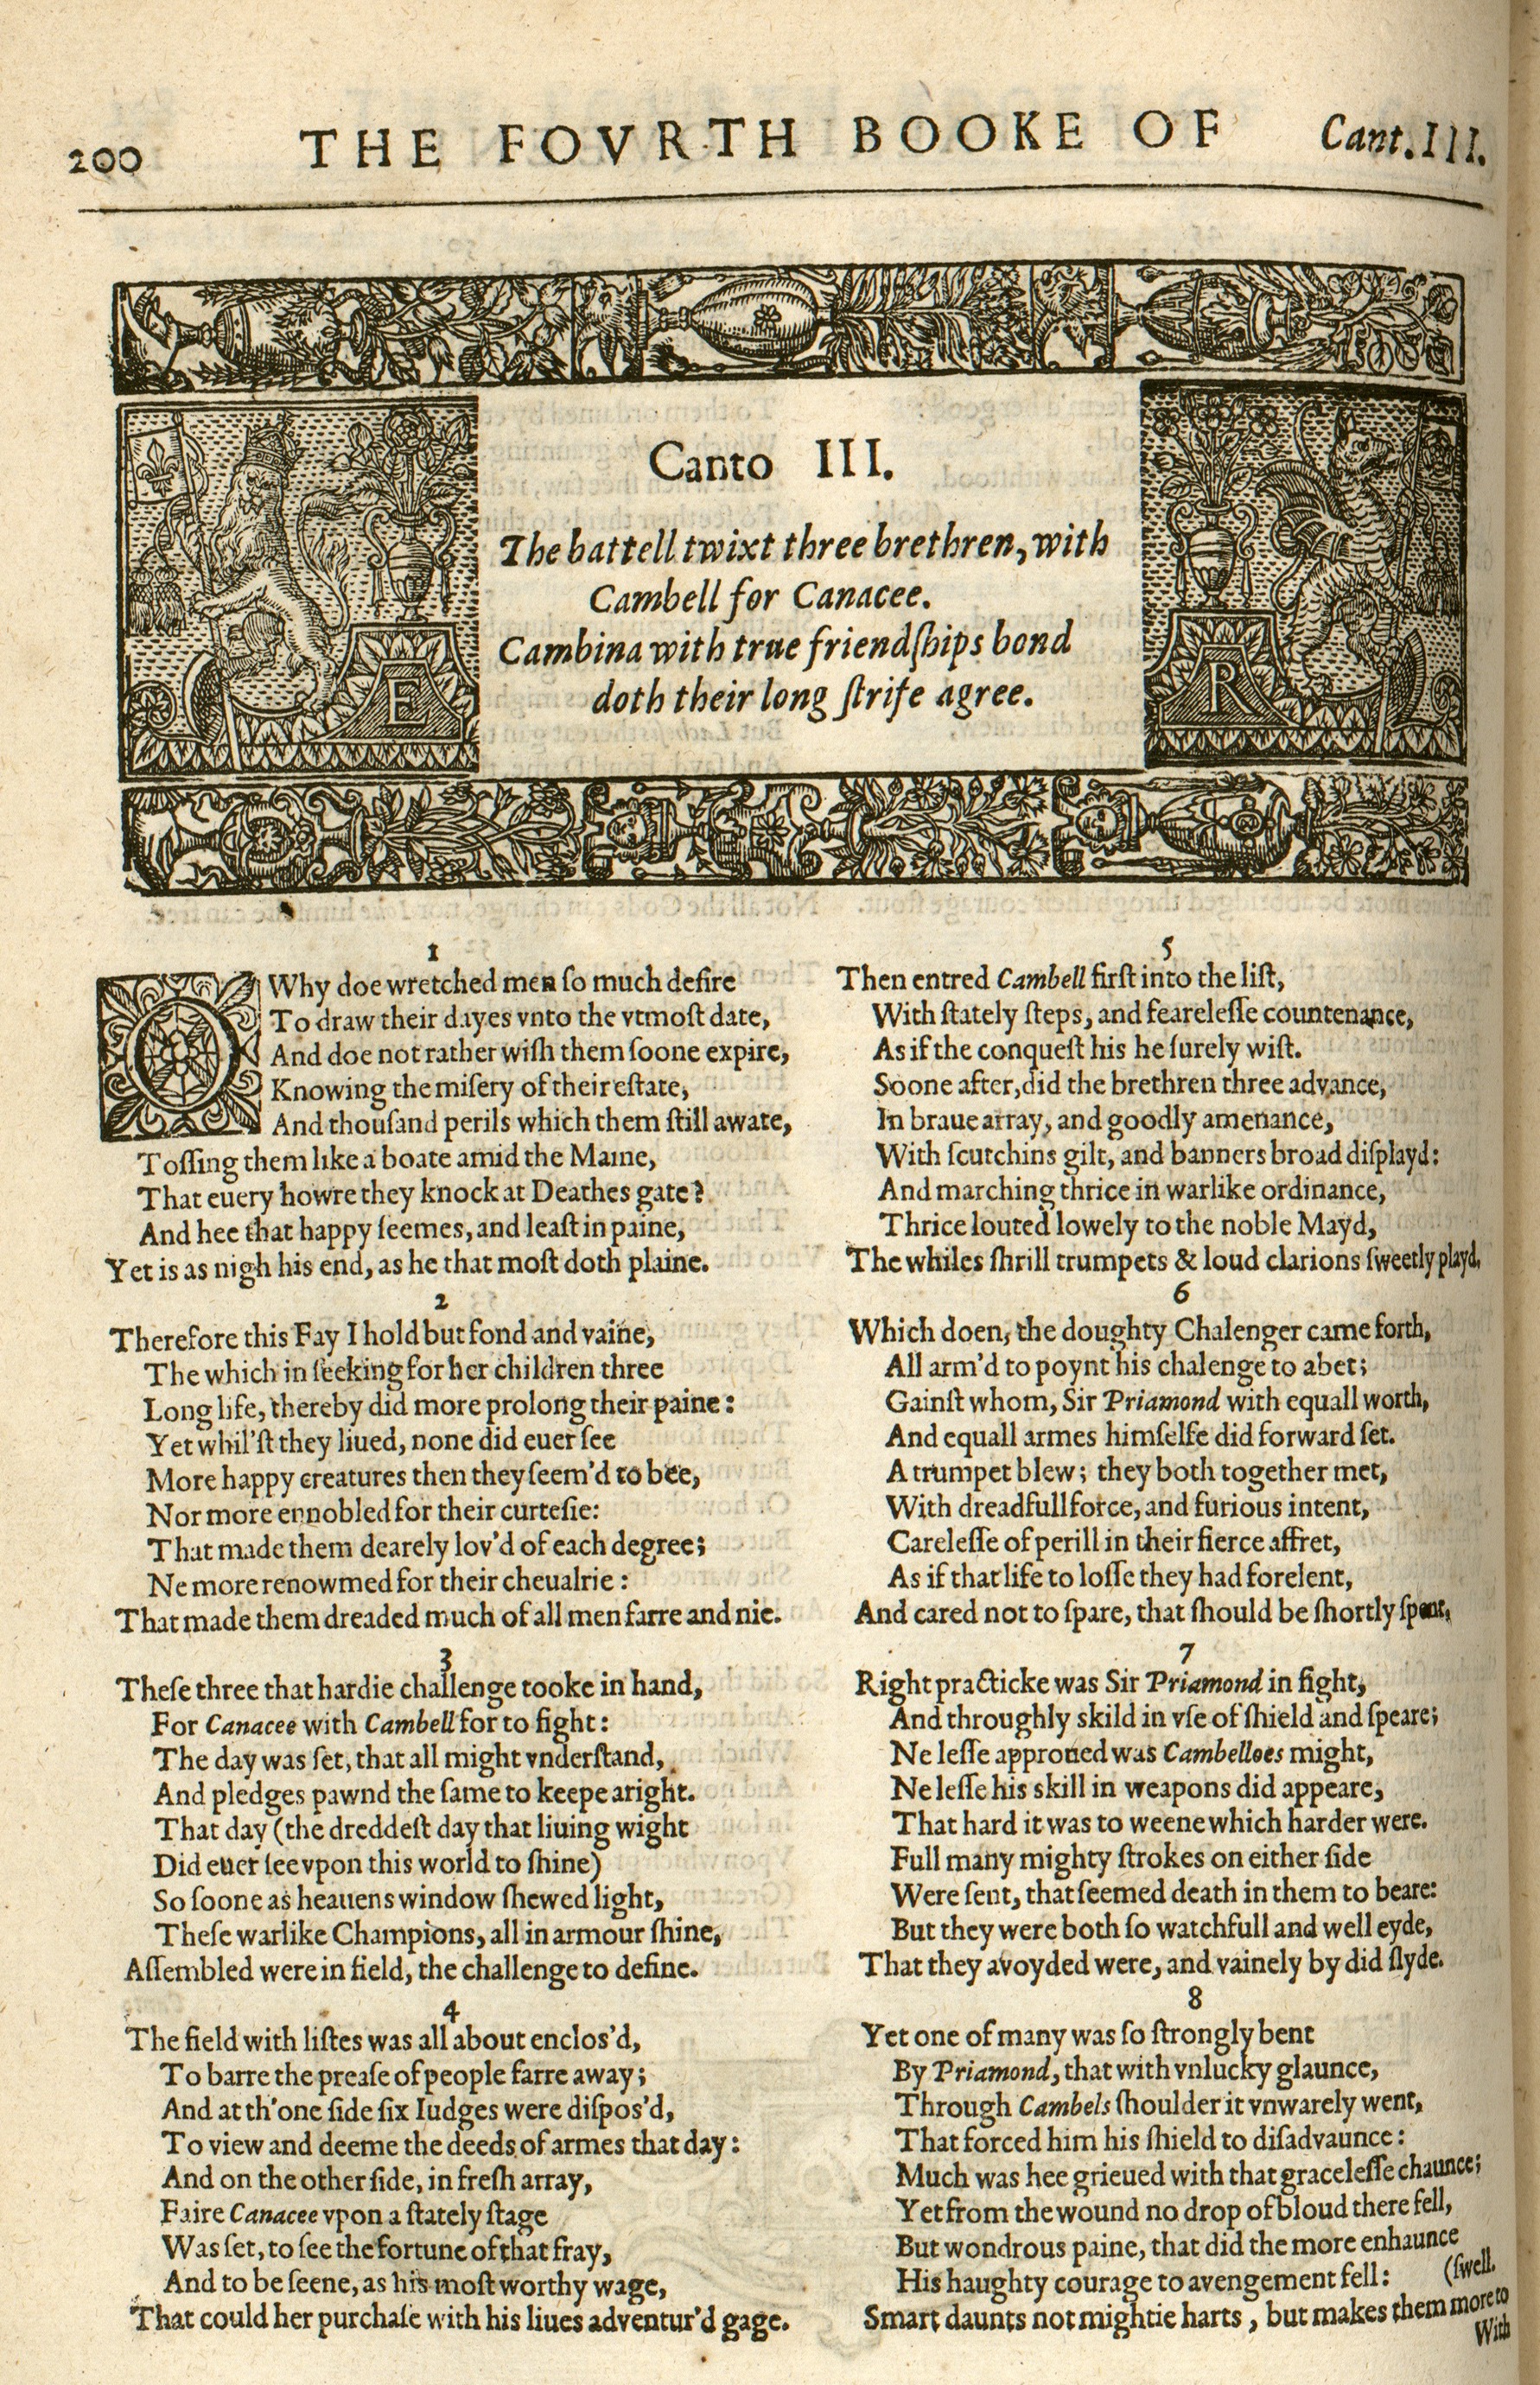 200 THE FOVRTH BOOKE OF Cant. III.
Canto III.
The battell twixt three brethren, with
Cambell for Canacee.
Cambina with true friendſhips bond
doth their long ſtrife agree.
E
R
1
O Why doe wretched men ſo much deſire
To draw their dayes vnto the vtmoſt date,
And doe not rather wiſh them ſoone expire,
Knowing the miſery of their eſtate,
And thouſand perils which them ſtill awate,
Toſſing them like a boate amid the Maine,
That euery howre they knock at Deathes gate?
And hee that happy ſeemes, and leaſt in paine,
Yet is as nigh his end, as he that moſt doth plaine.
2
Therefore this Fay I hold but fond and vaine,
The which in ſeeking for her children three
Long life, thereby did more prolong their paine:
Yet whil'ſt they liued, none did euer ſee
More happy creatures then they ſeem'd to bee,
Nor more ennobled for their curteſie:
That made them dearely lov'd of each degree;
Ne more renowmed for their cheualrie:
That made them dreaded much of all men farre and nie.
3
Theſe three that hardie challenge tooke in hand,
For Canacee with Cambell for to fight:
The day was ſet, that all might vnderſtand,
And pledges pawnd the ſame to keepe aright.
That day (the dreddeſt day that liuing wight
Did euer ſee vpon this world to ſhine)
So ſoone as heauens window ſhewed light,
Theſe warlike Champions, all in armour ſhine,
Aſſembled were in field, the challenge to define.
4
The field with liſtes was all about enclos'd,
To barre the preaſe of people farre away;
And at th'one ſide ſix Iudges were diſpos'd,
To view and deeme the deeds of armes that day:
And on the other ſide, in freſh array,
Faire Canacee vpon a ſtately ſtage
Was ſet, to ſee the fortune of that fray,
And to be ſeene, as his moſt worthy wage,
That could her purchaſe with his liues adventur'd gage.
5
Then entred Cambell firſt into the liſt,
With ſtately ſteps, and feareleſſe countenance,
As if the conqueſt his he ſurely wiſt.
Soone after, did the brethren three advance,
In braue array, and goodly amenance,
With ſcutchins gilt, and banners broad diſplayd:
And marching thrice in warlike ordinance,
Thrice louted lowely to the noble Mayd,
The whiles ſhrill trumpets & loud clarions ſweetly playd.
6
Which doen, the doughty Chalenger came forth,
All arm'd to poynt his chalenge to abet;
Gainſt whom, Sir Priamond with equall worth,
And equall armes himſelfe did forward ſet.
A trumpet blew; they both together met,
With dreadfull force, and furious intent,
Careleſſe of perill in their fierce affret,
As if that life to loſſe they had forelent,
And cared not to ſpare, that ſhould be ſhortly ſpent.
7
Right practicke was Sir Priamond in fight,
And throughly skild in vſe of ſhield and ſpeare;
Ne leſſe approued was Cambelloes might,
Ne leſſe his skill in weapons did appeare,
That hard it was to weene which harder were.
Full many mighty ſtrokes on either ſide
Were ſent, that ſeemed death in them to beare:
But they were both ſo watchfull and well eyde,
That they avoyded were, and vainely by did ſlyde.
8
Yet one of many was ſo ſtrongly bent
By Priamond, that with vnlucky glaunce,
Through Cambels ſhoulder it vnwarely went,
That forced him his ſhield to diſadvaunce:
Much was hee grieued with that graceleſſe chaunce;
Yet from the wound no drop of bloud there fell,
But wondrous paine, that did the more enhaunce
His haughty courage to avengement fell: (ſwell.
Smart daunts not mightie harts, but makes them more to
With